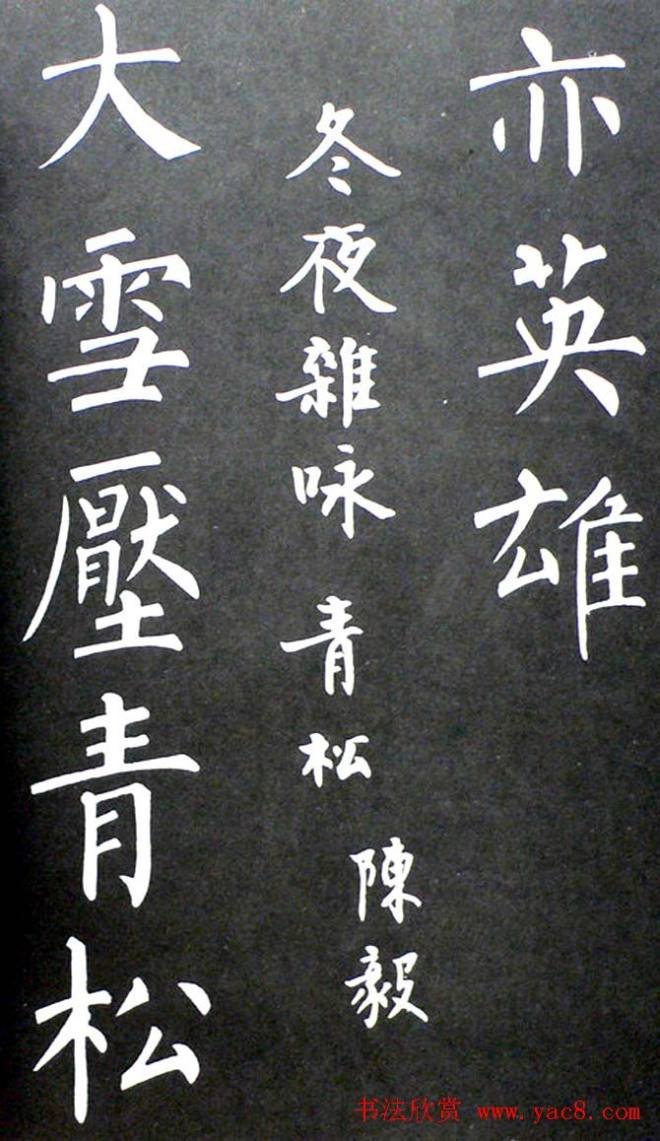 亦英雄
冬夜雜咏 青松
陳毅
大雪壓青松
书法欣赏 www.yac8.com